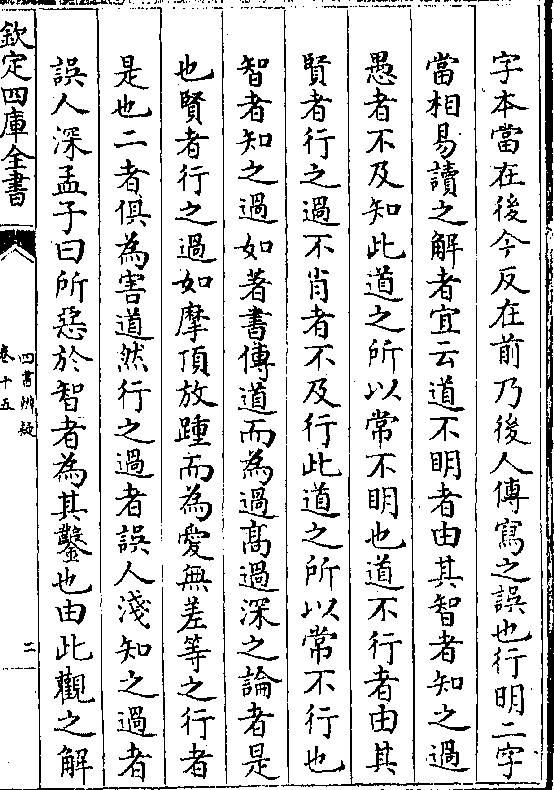 字本當在後今反在前乃後人傳寫之誤也行明二字
當相易讀之解者宜云道不明者由其智者知之過
愚者不及知此道之所以常不明也道不行者由其
賢者行之過不肖者不及行此道之所以常不行也
智者知之過如著書傳道而為過髙過深之論者是
也賢者行之過如摩頂放踵而為愛無差等之行者
是也二者俱為害道然行之過者誤人淺知之過者
誤人深孟子曰所惡於智者為其鑿也由此觀之解
欽定四庫全書
四書辨疑
卷十五
二